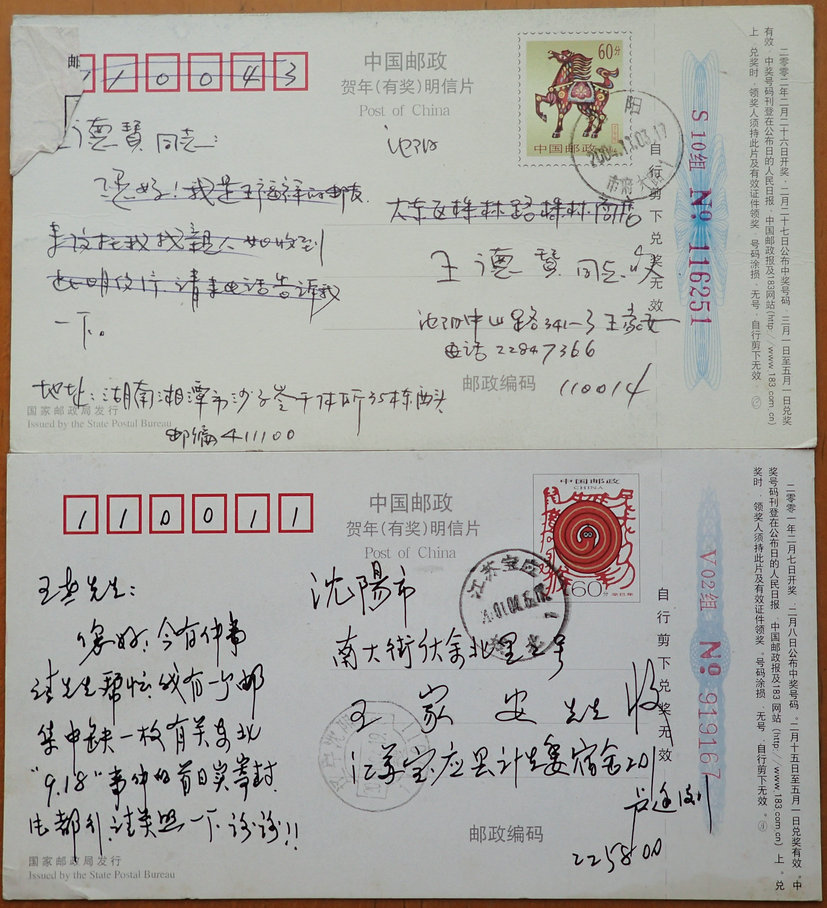 邮
110043
中国邮政
贺年(有奖)明信片
Post of China
60分
中国邮政
阳
沈阳
德贤同志:
您好!我是王福祥的邮友
找亲人如收到
此明信片请来电话告诉我
一下。
大东区株林路株林商店
王德贤同志收
沈阳中山路341—3王家安
电话22847366
邮政编码 110014
地址:湖南湘潭市沙子岭干休所35栋西头
邮编411100
国家邮政局发行
Issued by the State Postal Bureau
自行剪下兑奖无效
S10组 No 116251
二零零二年二月二十六日开奖,二月二十七日公布中奖号码,三月一日至五月一日兑奖
有效,中奖号码刊登在公布日的人民日报、中国邮政报及183网站(http://www.183.com.cn)
上,兑奖时,领奖人须持此片及有效证件领奖,号码涂损、无号、自行剪下无效。
110011
中国邮政
贺年(有奖)明信片
Post of China
中国邮政
CHINA
60分
辛巳年
江苏宝应
王老先生:
您好:今有件事
请先生帮忙我有一个邮
集中缺一枚有关东北
"9.18"事件的首日实寄封
请关照一下谢谢!!
沈阳市
南大街伏余北里2号
王家安先生收
江苏宝应县计生委宿舍201
邮政编码
225800
国家邮政局发行
Issued by the State Postal Bureau
自行剪下兑奖无效
V02组 No 919167
二零零一年二月七日开奖,二月八日公布中奖号码。二月十五日至五月一日兑奖有效。中
奖号码刊登在公布日的人民日报、中国邮政报及183网站(http://www.183.com.cn)上。兑
奖时,领奖人须持此片及有效证件领奖。号码涂损、无号、自行剪下无效。